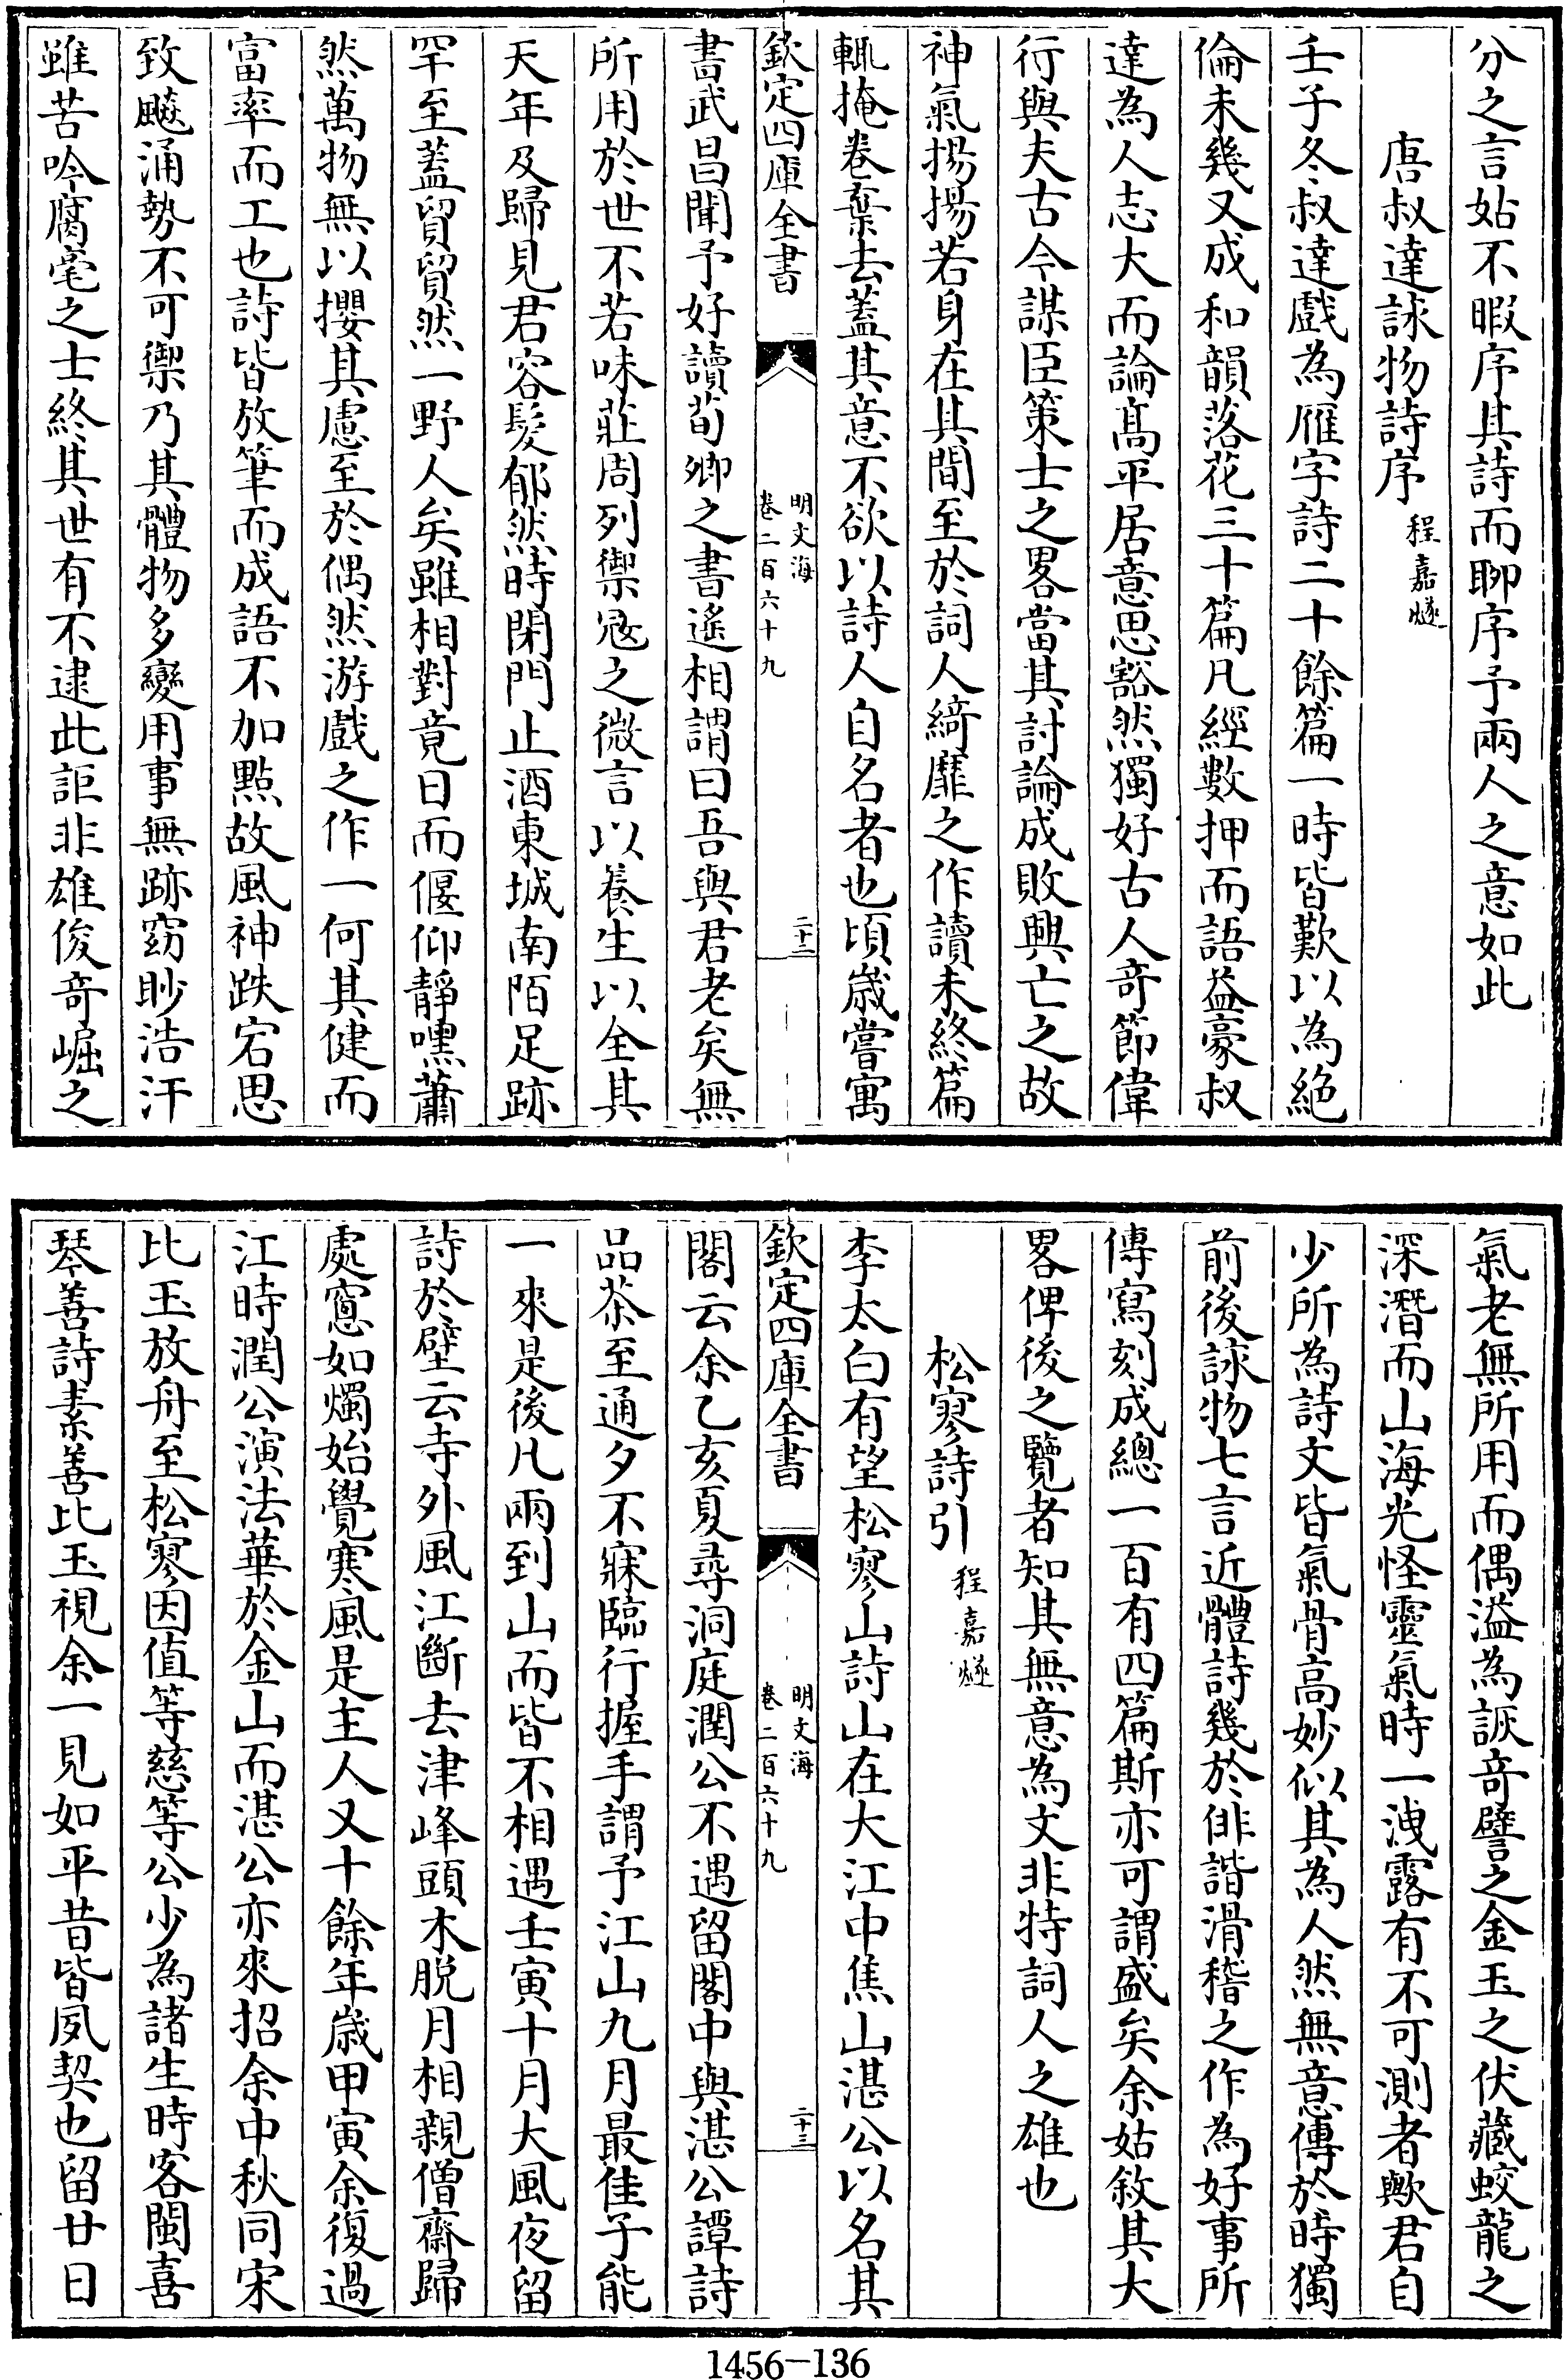 分之言姑不暇序其詩而聊序予兩人之意如此
唐叔達詠物詩序 程嘉燧
壬子冬叔達戲為雁字詩二十餘篇一時皆歎以為絕
倫未幾又成和韻落花三十篇凡經數押而語益豪叔
達為人志大而論髙平居意思豁然獨好古人竒節偉
行與夫古今謀臣策士之畧當其討論成敗興亡之故
神氣揚揚若身在其間至於詞人綺靡之作讀未終篇
輒掩卷棄去蓋其意不欲以詩人自名者也頃歳嘗寓
欽定四庫全書
明文海
卷二百六十九
二十二
書武昌聞予好讀荀卿之書遙相謂曰吾與君老矣無
所用於世不若味莊周列禦冦之微言以養生以全其
天年及歸見君容髮郁然時閉門止酒東城南陌足跡
罕至蓋貿貿然一野人矣雖相對竟日而偃仰靜嘿蕭
然萬物無以攖其慮至於偶然游戲之作一何其健而
富率而工也詩皆放筆而成語不加點故風神跌宕思
致飈涌勢不可禦乃其體物多變用事無跡窈眇浩汗
雖苦吟腐毫之士終其世有不逮此詎非雄俊竒崛之
氣老無所用而偶溢為詼竒譬之金玉之伏藏蛟龍之
深潛而山海光怪靈氣時一洩露有不可測者歟君自
少所為詩文皆氣骨高妙似其為人然無意傳於時獨
前後詠物七言近體詩幾於俳諧滑稽之作為好事所
傳寫刻成總一百有四篇斯亦可謂盛矣余姑敘其大
畧俾後之覽者知其無意為文非特詞人之雄也
松寥詩引 程嘉燧
李太白有望松寥山詩山在大江中焦山湛公以名其
欽定四庫全書
明文海
卷二百六十九
二十三
閣云余乙亥夏尋洞庭潤公不遇留閣中與湛公譚詩
品茶至通夕不寐臨行握手謂予江山九月最佳子能
一來是後凡兩到山而皆不相遇壬寅十月大風夜留
詩於壁云寺外風江斷去津峰頭木脫月相親僧齋歸
處窻如燭始覺寒風是主人又十餘年歲甲寅余復過
江時潤公演法華於金山而湛公亦來招余中秋同宋
比玉放舟至松寥因值等慈等公少為諸生時客閩喜
琴善詩素善比玉視余一見如平昔皆夙契也留廿日
1456-136